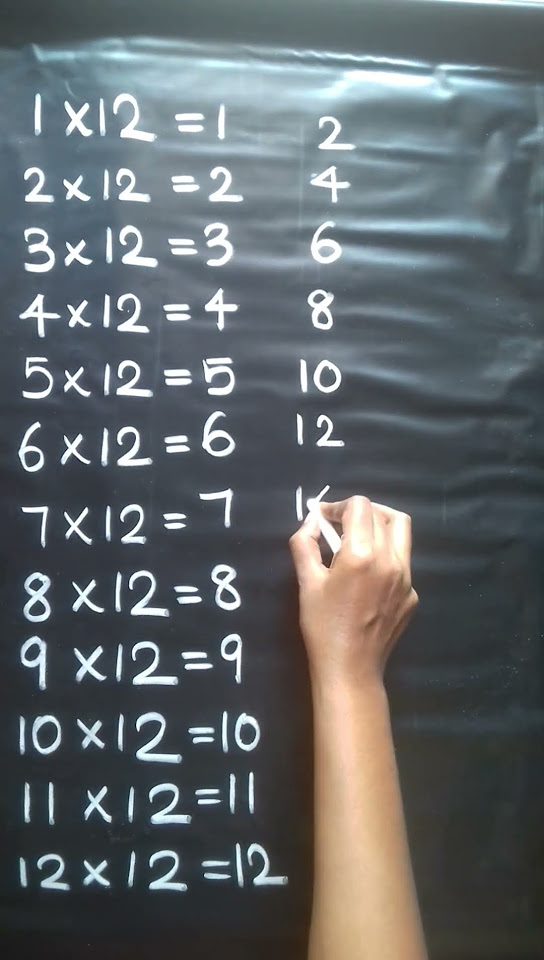 1 ×12 =1 2
2 × 12 =2 4
3 × 12 =3 6
4 ×12 = 4 8
5 ×12 =5 10
6 ×12 =6 12
7 ×12 = 7
8 ×12=8
9 ×12=9
10 ×12 =10
11 ×12=11
12 × 12 =12